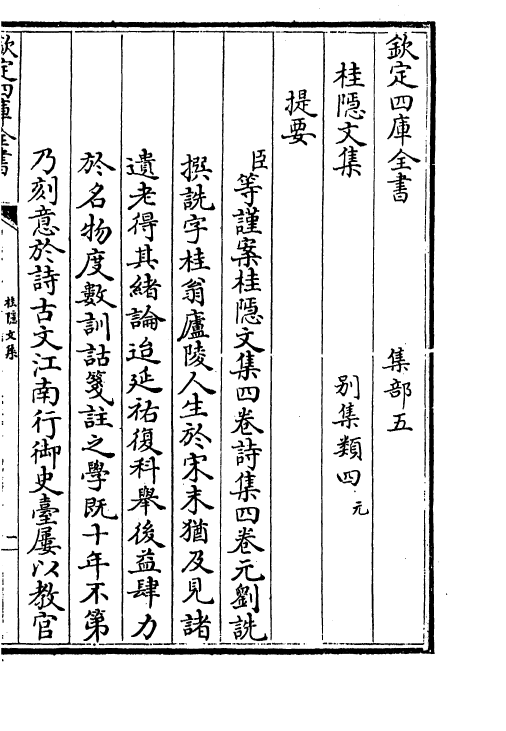 欽定四庫全書 集部五
桂隱文集 别集類四 元
提要
臣等謹案桂隱文集四卷詩集四卷元劉詵
撰詵字桂翁廬陵人生於宋末猶及見諸
遺老得其緒論迨延祐復科舉後益肆力
於名物度數訓詁箋註之學既十年不第
乃刻意於詩古文江南行御史臺屢以教官
欽定四庫全書
桂隱文集
一